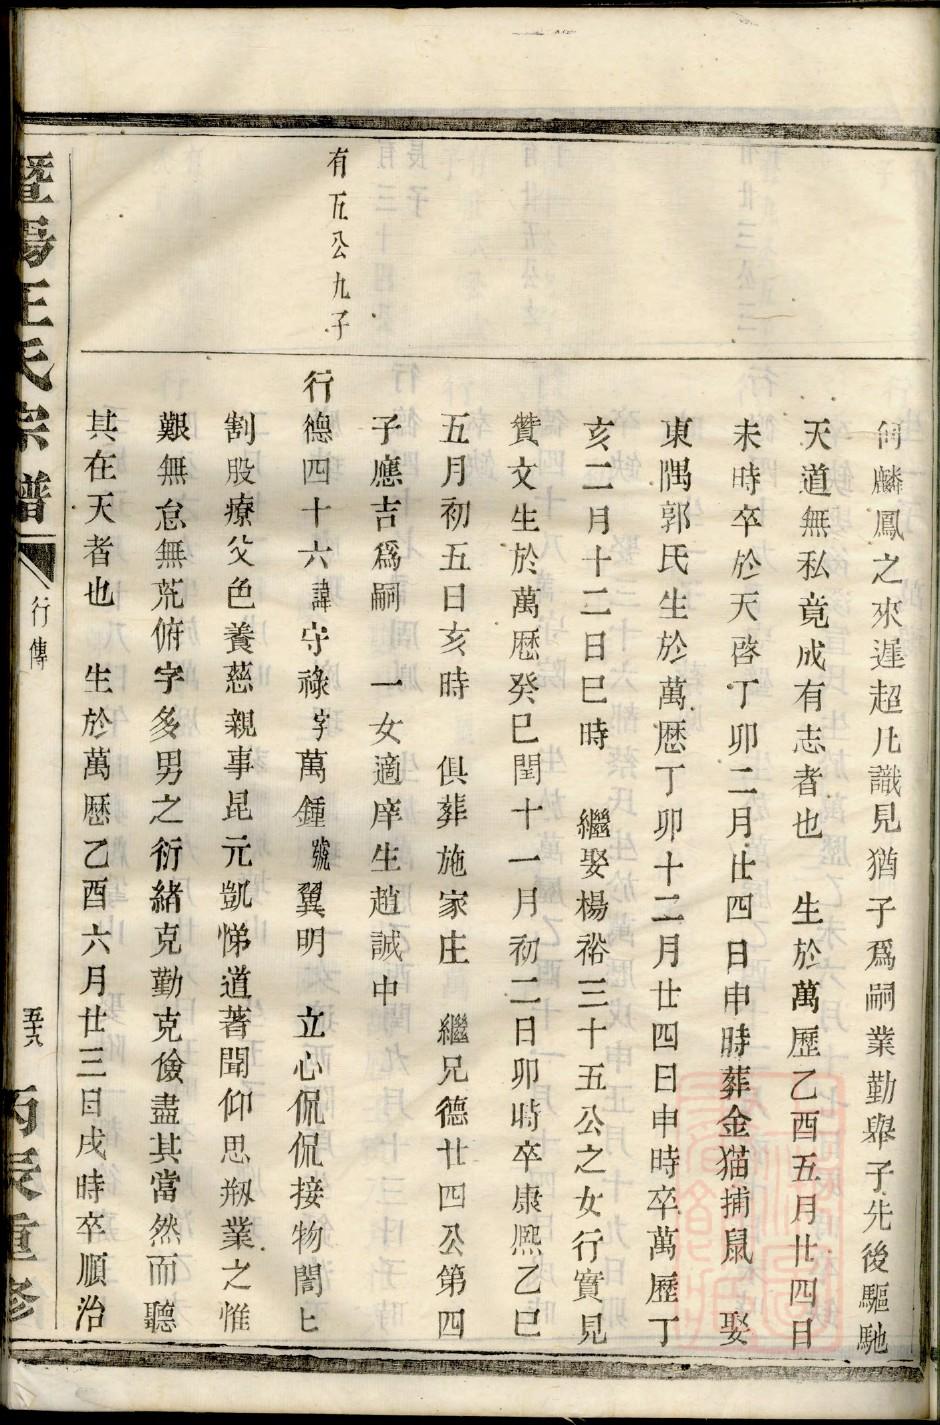 何麟鳳之來遲超凡識見猶子爲嗣業勤舉子先後驅馳
天道無私竟成有志者也 生於萬歷乙酉五月廿四日
未時卒於天啓丁卯二月廿四日申時葬金猫捕鼠 娶
東隅郭氏生於萬歷丁卯十二月廿四日申時卒萬歷丁
亥二月十二日巳時 繼娶楊裕三十五公之女行實見
贊文生於萬歷癸巳閏十一月初二日卯時卒康熈乙巳
五月初五日亥時 俱葬施家庄 繼兄德廿四公第四
子應吉爲嗣 一女適庠生趙誠中
有五公九子
行德四十六諱守祿字萬鍾號翼明 立心侃侃接物誾誾
割股療父色養慈親事昆元凱悌道著聞仰思剏業之惟
艱無怠無荒俯字多男之衍緒克勤克儉盡其當然而聽
其在天者也 生於萬歷乙酉六月廿三日戌時卒順治
暨陽王氏宗譜
行傳
丙辰重修